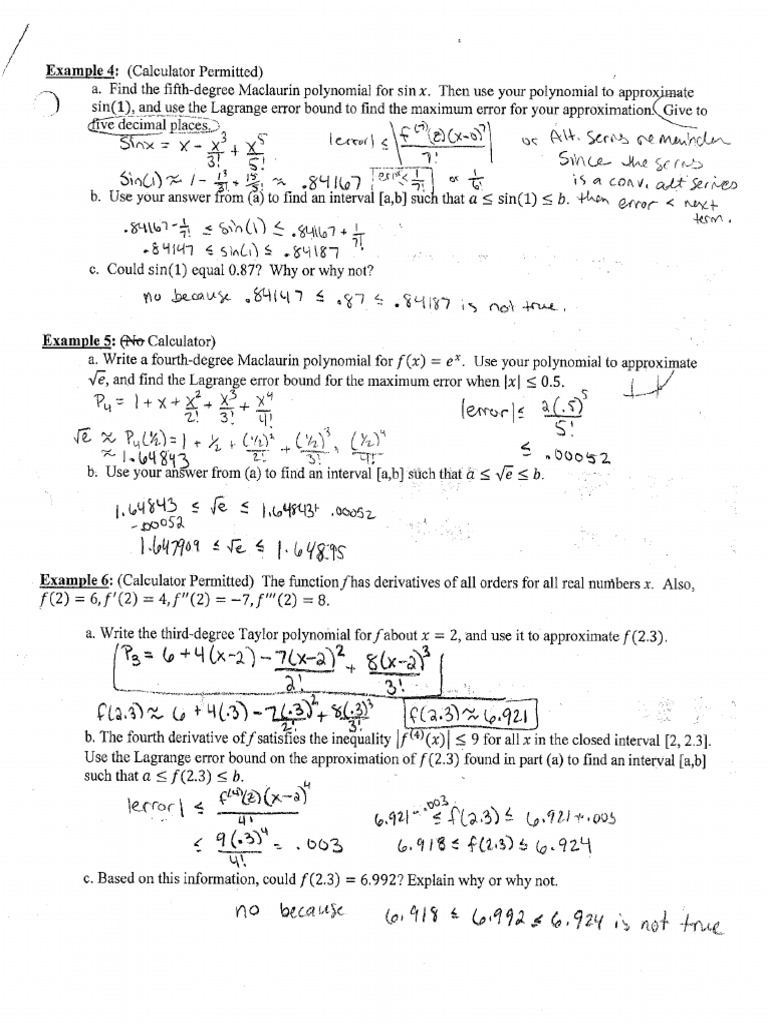 Example 4: (Calculator Permitted)
a. Find the fifth-degree Maclaurin polynomial for sin x. Then use your polynomial to approximate
sin(1), and use the Lagrange error bound to find the maximum error for your approximation. Give to
five decimal places.
sin x = x - x³/3! + x⁵/5!
|error| ≤ |f⁽⁷⁾(z)(x-0)⁷/7!|
or Alt. Series remainder
Since the series
is a conv. alt series
then error < next
term.
Sin(1) ≈ 1 - 1³/3! + 1⁵/5! ≈ .84167
|error| ≤ 1/7! or 1/6!
b. Use your answer from (a) to find an interval [a,b] such that a ≤ sin(1) ≤ b.
.84167 - 1/7! ≤ sin(1) ≤ .84167 + 1/7!
.84147 ≤ sin(1) ≤ .84187
c. Could sin(1) equal 0.87? Why or why not?
no because .84147 ≤ .87 ≤ .84187 is not true.
Example 5: (No Calculator)
a. Write a fourth-degree Maclaurin polynomial for f(x) = eˣ. Use your polynomial to approximate
√e, and find the Lagrange error bound for the maximum error when |x| ≤ 0.5.
P₄ = 1 + x + x²/2! + x³/3! + x⁴/4!
|error| ≤ 2(.5)⁵/5!
≤ .00052
√e ≈ P₄(½) = 1 + ½ + (½)²/2! + (½)³/3! + (½)⁴/4!
≈ 1.64843
b. Use your answer from (a) to find an interval [a,b] such that a ≤ √e ≤ b.
1.64843 - .00052 ≤ √e ≤ 1.64843 + .00052
1.647909 ≤ √e ≤ 1.64895
Example 6: (Calculator Permitted) The function f has derivatives of all orders for all real numbers x. Also,
f(2) = 6, f'(2) = 4, f''(2) = -7, f'''(2) = 8.
a. Write the third-degree Taylor polynomial for f about x = 2, and use it to approximate f(2.3).
P₃ = 6 + 4(x-2) - 7(x-2)²/2! + 8(x-2)³/3!
f(2.3) ≈ 6 + 4(.3) - 7(.3)²/2! + 8(.3)³/3!
f(2.3) ≈ 6.921
b. The fourth derivative of f satisfies the inequality |f⁽⁴⁾(x)| ≤ 9 for all x in the closed interval [2, 2.3].
Use the Lagrange error bound on the approximation of f(2.3) found in part (a) to find an interval [a,b]
such that a ≤ f(2.3) ≤ b.
|error| ≤ f⁽⁴⁾(z)(x-2)⁴/4!
≤ 9(.3)⁴/4! = .003
6.921 - .003 ≤ f(2.3) ≤ 6.921 + .003
6.918 ≤ f(2.3) ≤ 6.924
c. Based on this information, could f(2.3) = 6.992? Explain why or why not.
no because 6.918 ≤ 6.992 ≤ 6.924 is not true